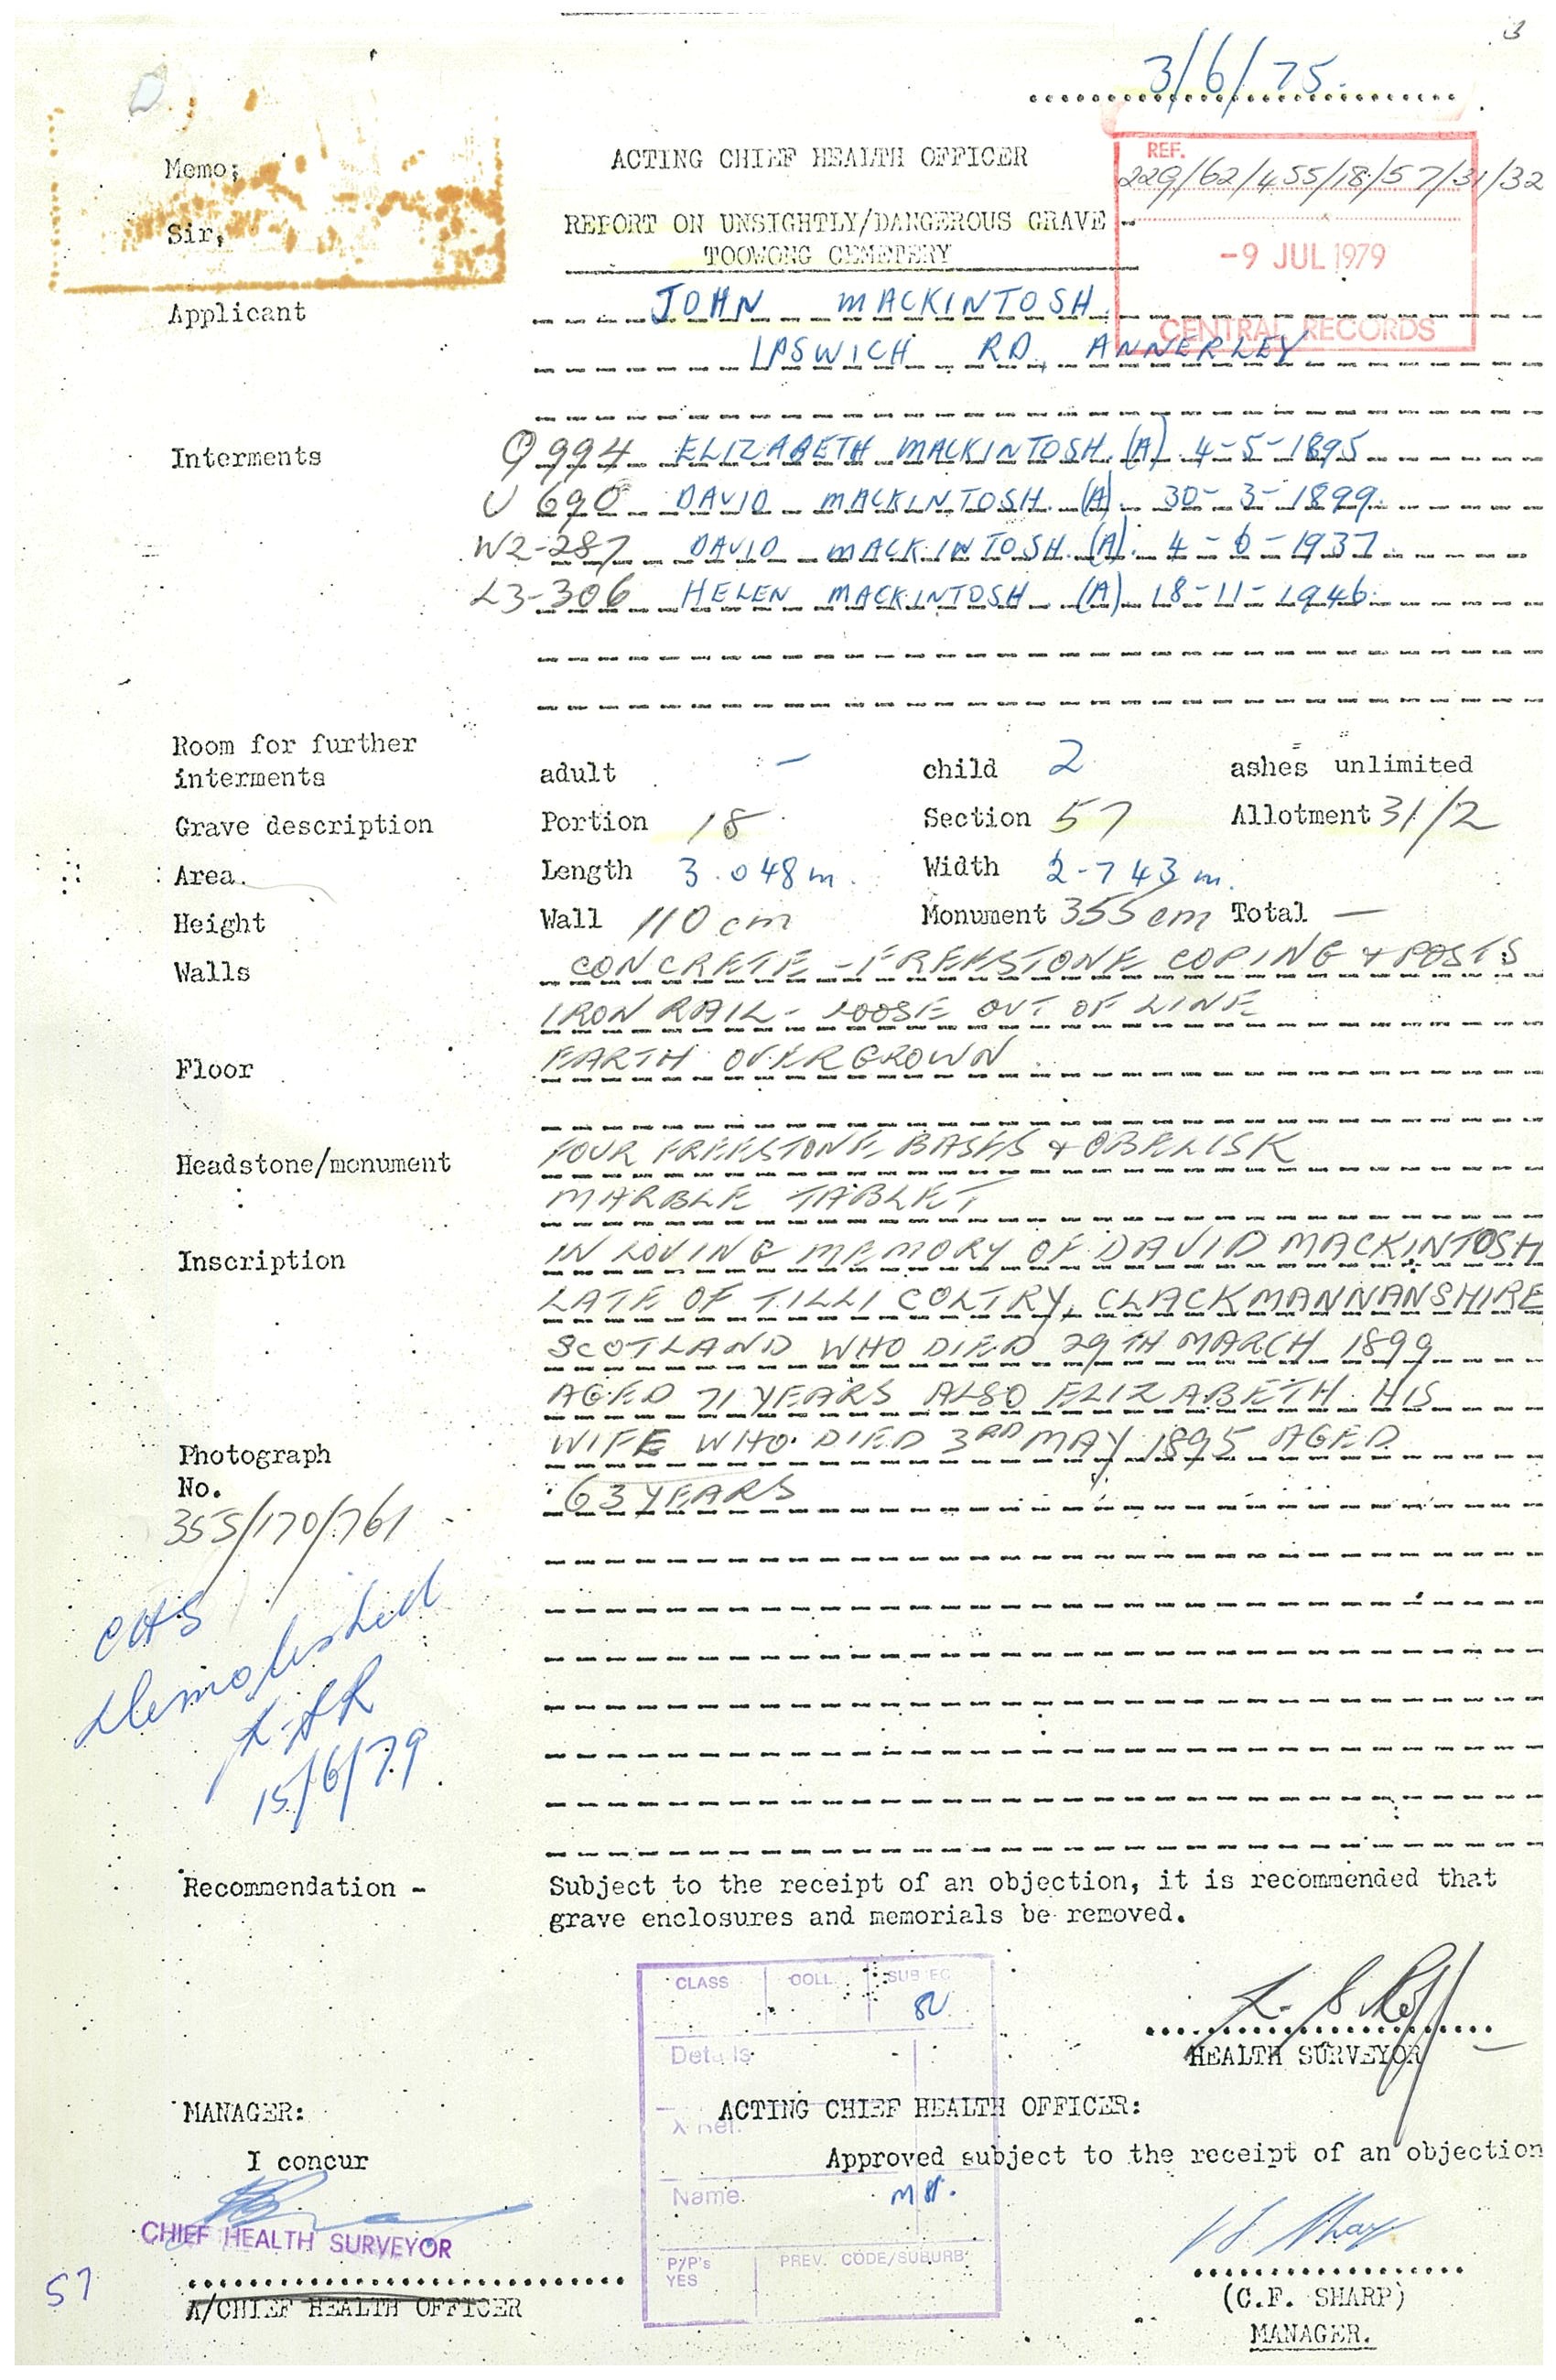 3
3/6/75.
Memo;
ACTING CHIEF HEALTH OFFICER
REF.
229/62/455/18/57/31/32
Sir,
REPORT ON UNSIGHTLY/DANGEROUS GRAVE -
TOOWONG CEMETERY
-9 JUL 1979
CENTRAL RECORDS
Applicant JOHN MACKINTOSH
IPSWICH RD, ANNERLEY
Interments Q 994 ELIZABETH MACKINTOSH. (A) 4-5-1895
U 690 DAVID MACKINTOSH. (A). 30-3-1899.
W2-287 DAVID MACKINTOSH. (A). 4-6-1937.
L3-306 HELEN MACKINTOSH (A) 18-11-1946.
Room for further
interments adult - child 2 ashes unlimited
Grave description Portion 18 Section 57 Allotment 31/2
Area. Length 3.048m. Width 2-743 m.
Height Wall 110 cm Monument 355 cm Total —
Walls CONCRETE - FREESTONE COPING & POSTS
IRON RAIL - LOOSE OUT OF LINE
Floor EARTH OVERGROWN
Headstone/monument FOUR FREESTONE BASES & OBELISK
MARBLE TABLET
Inscription IN LOVING MEMORY OF DAVID MACKINTOSH
LATE OF TILLI COLTRY, CLACKMANNANSHIRE
SCOTLAND WHO DIED 29TH MARCH 1899
AGED 71 YEARS ALSO ELIZABETH HIS
WIFE WHO DIED 3RD MAY 1895 AGED
63 YEARS
Photograph
No.
355/170/761
CHS
Demolished
15/6/79
Recommendation - Subject to the receipt of an objection, it is recommended that
grave enclosures and memorials be removed.
CLASS COLL SUBJEC
Details
X Ref.
Name.
P/P's
YES
PREV. CODE/SUBURB
HEALTH SURVEYOR
MANAGER:
ACTING CHIEF HEALTH OFFICER:
I concur
Approved subject to the receipt of an objection
CHIEF HEALTH SURVEYOR
57
A/CHIEF HEALTH OFFICER
(C.F. SHARP)
MANAGER.